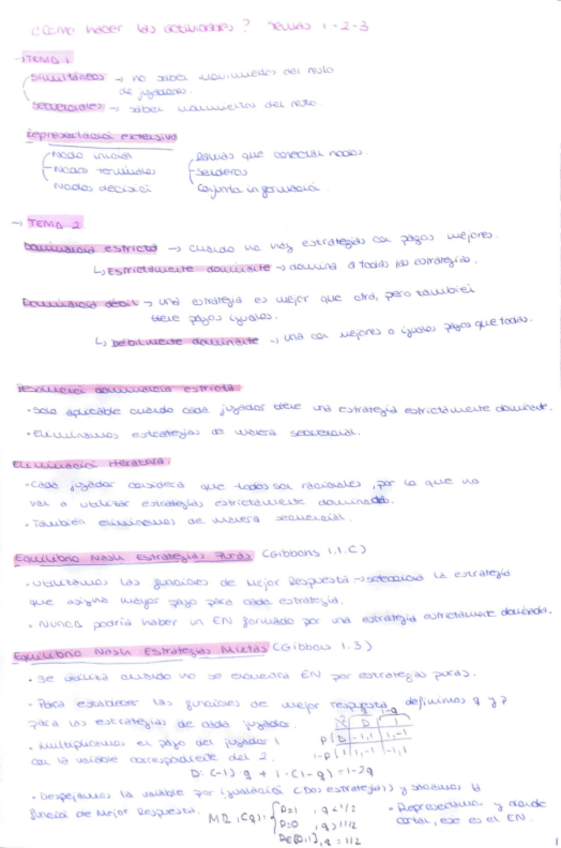 ¿Cómo hacer las actividades? Temas 1-2-3
→ TEMA 1
Simultáneos → no saber movimientos del resto
de jugadores.
Secuenciales → saber movimientos del resto.
Representació extensiva
Nodo inicial
Nodos terminales
Nodos decisió
Ramas que conectan nodos.
Senderos
Conjunto información.
→ TEMA 2
Dominancia estricta → cuando no hay estrategias con pagos mejores.
↳ Estrictamente dominante → domina a todas las estrategias.
Dominancia débil → una estrategia es mejor que otra, pero también
tiene pagos iguales.
↳ Débilmente dominante → una con mejores o iguales pagos que todas.
Resolució dominancia estricta
• Solo aplicable cuando cada jugador tiene una estrategia estrictamente dominante.
• Eliminamos estrategias de manera secuencial.
Eliminació iterativa
• Cada jugador considera que todos son racionales, por lo que no
van a utilizar estrategias estrictamente dominadas.
• También eliminamos de manera secuencial.
Equilibrio Nash Estrategias Puras (Gibbons 1.1.C)
• Utilizamos las funciones de Mejor Respuesta → selecciona la estrategia
que asigna mayor pago para cada estrategia.
• Nunca podría haber un EN formado por una estrategia estrictamente dominada.
Equilibrio Nash Estrategias Mixtas (Gibbons 1.3)
• Se utiliza cuando no se encuentra EN por estrategias puras.
• Para establecer las funciones de mejor respuesta definimos q y p
para las estrategias de cada jugador.
q 1-q
D 1
P D -1,1 1,-1
1-P 1 1,-1 -1,1
• Multiplicamos el pago del jugador 1
con la variable correspondiente del 2.
D: (-1) q + 1·(1-q) = 1-2q
• Despejamos la variable por igualació (Dos estrategias) y sacamos la
función de Mejor Respuesta. MR1(q) = P=1, q<1/2
P=0, q>1/2
PE[0,1], q=1/2
• Representamos y donde
cortan, ese es el EN.
1